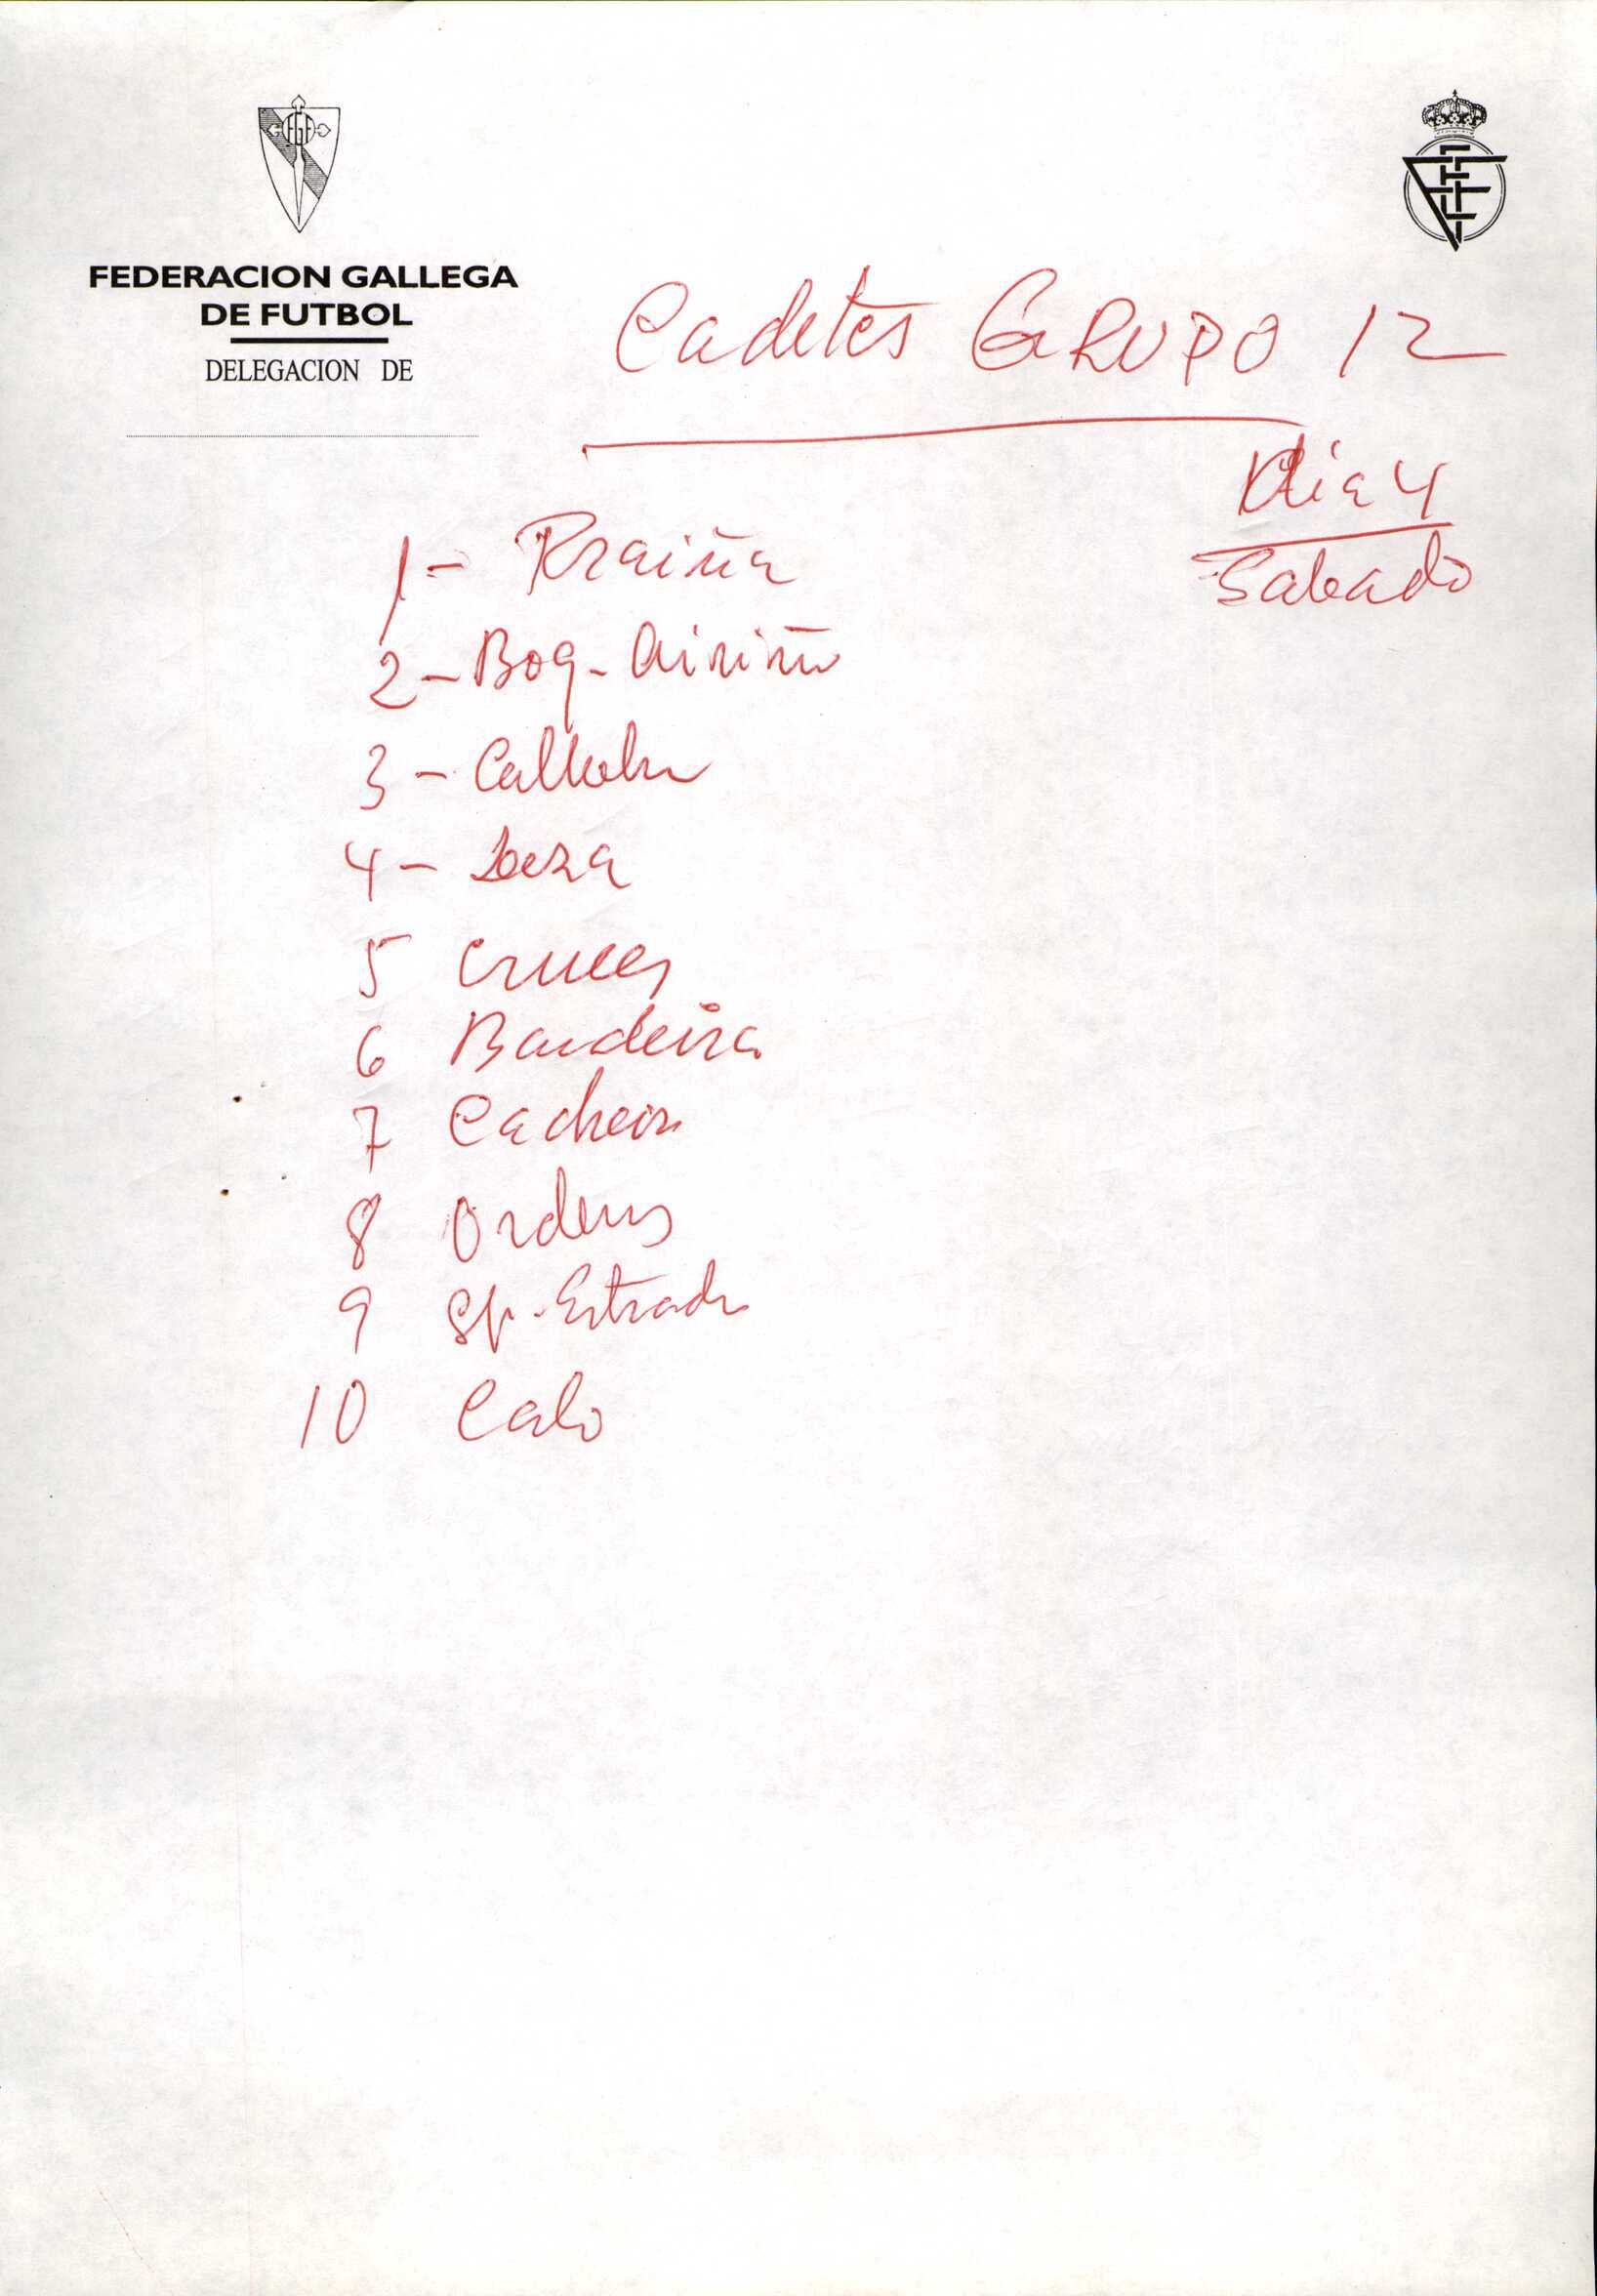 FEDERACION GALLEGA
DE FUTBOL
DELEGACION DE
Cadetes GRUPO 12
Dia 4
Sabado
1- Praiña
2- Boq- Airiño
3-
4- Deza
5 Cruces
6 Bandeira
7 Cacheiras
8 Ordenes
9 Sp. Estrada
10 Calo